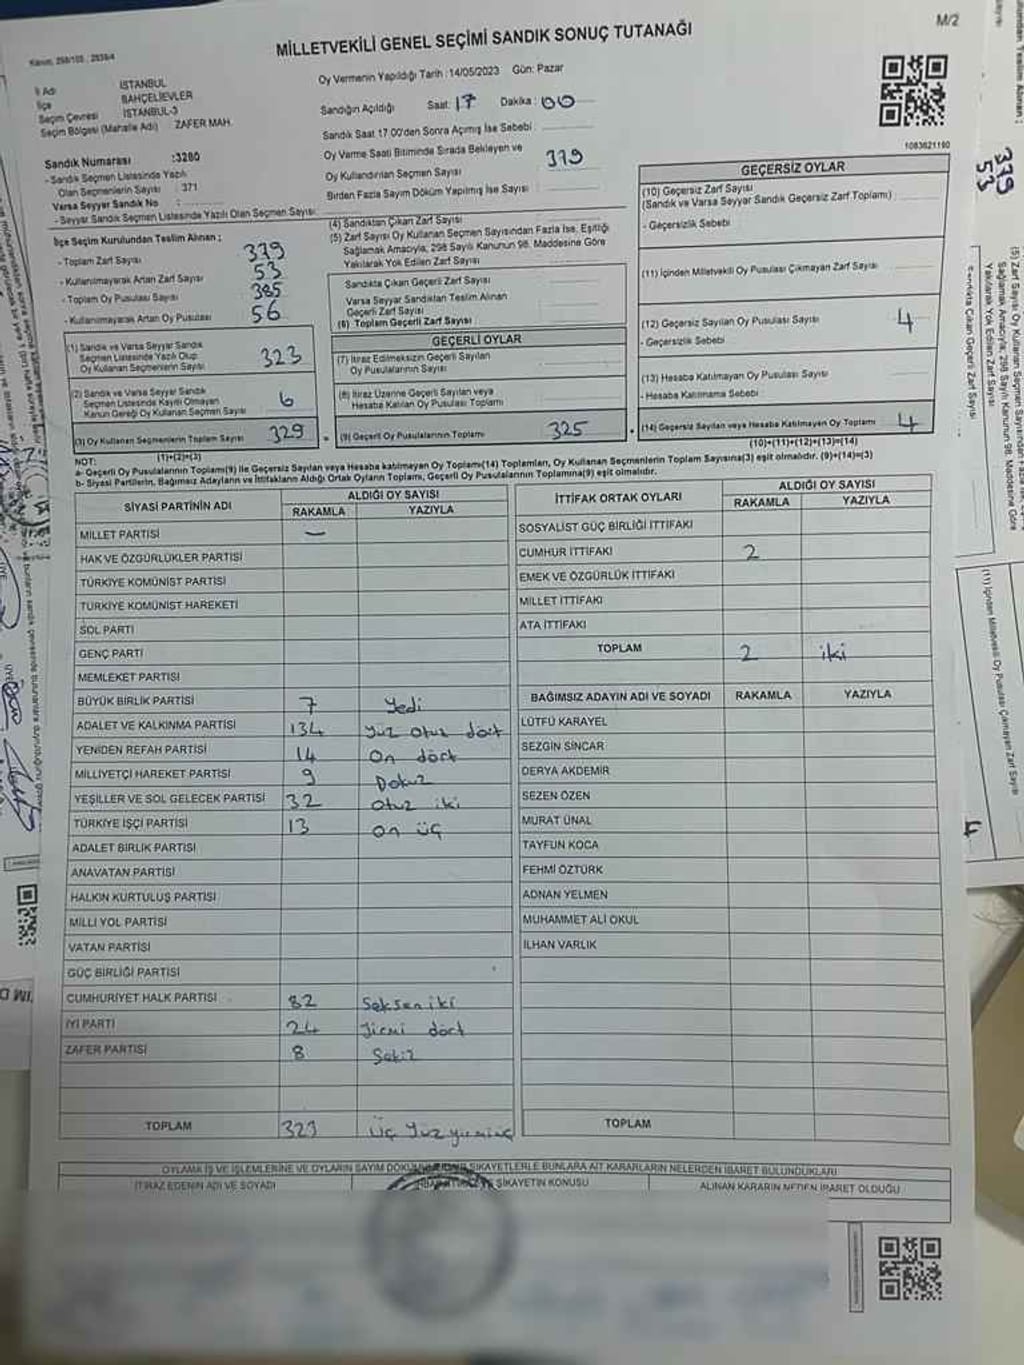 M/2
MİLLETVEKİLİ GENEL SEÇİMİ SANDIK SONUÇ TUTANAĞI
İl Adı İSTANBUL
İlçe BAHÇELİEVLER
Seçim Çevresi İSTANBUL-3
Seçim Bölgesi (Mahalle Adı) ZAFER MAH.
Oy Vermenin Yapıldığı Tarih :14/05/2023 Gün: Pazar
Sandığın Açıldığı Saat: 17 Dakika: 00
Sandık Saat 17:00'den Sonra Açımış İse Sebebi
Oy Verme Saati Bitiminde Sırada Bekleyen ve
Oy Kullandırılan Seçmen Sayısı 379
Birden Fazla Sayım Döküm Yapılmış İse Sayısı
1083621190
Sandık Numarası :3280
- Sandık Seçmen Listesinde Yazılı
Olan Seçmenlerin Sayısı : 371
Varsa Seyyar Sandık No :
- Seyyar Sandık Seçmen Listesinde Yazılı Olan Seçmen Sayısı:
İlçe Seçim Kurulundan Teslim Alınan ;
- Toplam Zarf Sayısı 379
- Kullanılmayarak Artan Zarf Sayısı 53
- Toplam Oy Pusulası Sayısı 385
- Kullanılmayarak Artan Oy Pusulası 56
(1) Sandık ve Varsa Seyyar Sandık
Seçmen Listesinde Yazılı Olup
Oy Kullanan Seçmenlerin Sayısı 323
(2) Sandık ve Varsa Seyyar Sandık
Seçmen Listesinde Kayıtlı Olmayan
Kanun Gereği Oy Kullanan Seçmen Sayısı 6
(3) Oy Kullanan Seçmenlerin Toplam Sayısı 329
(1)+(2)=(3)
(4) Sandıktan Çıkan Zarf Sayısı
(5) Zarf Sayısı Oy Kullanan Seçmen Sayısından Fazla İse, Eşitliği
Sağlamak Amacıyla, 298 Sayılı Kanunun 98. Maddesine Göre
Yakılarak Yok Edilen Zarf Sayısı
Sandıkta Çıkan Geçerli Zarf Sayısı
Varsa Seyyar Sandıktan Teslim Alınan
Geçerli Zarf Sayısı
(6) Toplam Geçerli Zarf Sayısı
GEÇERLİ OYLAR
(7) İtiraz Edilmeksizin Geçerli Sayılan
Oy Pusulalarının Sayısı
(8) İtiraz Üzerine Geçerli Sayılan veya
Hesaba Katılan Oy Pusulası Toplamı
(9) Geçerli Oy Pusulalarının Toplamı 325
GEÇERSİZ OYLAR
(10) Geçersiz Zarf Sayısı
(Sandık ve Varsa Seyyar Sandık Geçersiz Zarf Toplamı)
- Geçersizlik Sebebi
(11) İçinden Milletvekili Oy Pusulası Çıkmayan Zarf Sayısı
(12) Geçersiz Sayılan Oy Pusulası Sayısı 4
- Geçersizlik Sebebi
(13) Hesaba Katılmayan Oy Pusulası Sayısı
- Hesaba Katılmama Sebebi
(14) Geçersiz Sayılan veya Hesaba Katılmayan Oy Toplamı 4
(10)+(11)+(12)+(13)=(14)
NOT:
a- Geçerli Oy Pusulalarının Toplamı(9) ile Geçersiz Sayılan veya Hesaba katılmayan Oy Toplamı(14) Toplamları, Oy Kullanan Seçmenlerin Toplam Sayısına(3) eşit olmalıdır. (9)+(14)=(3)
b- Siyasi Partilerin, Bağımsız Adayların ve İttifakların Aldığı Oy Sayıları Toplamı, Geçerli Oy Pusulalarının Toplamına(9) eşit olmalıdır.
SİYASİ PARTİNİN ADI ALDIĞI OY SAYISI
RAKAMLA YAZIYLA
MİLLET PARTİSİ –
HAK VE ÖZGÜRLÜKLER PARTİSİ
TÜRKİYE KOMÜNİST PARTİSİ
TÜRKİYE KOMÜNİST HAREKETİ
SOL PARTİ
GENÇ PARTİ
MEMLEKET PARTİSİ
BÜYÜK BİRLİK PARTİSİ 7 Yedi
ADALET VE KALKINMA PARTİSİ 134 Yüz otuz dört
YENİDEN REFAH PARTİSİ 14 On dört
MİLLİYETÇİ HAREKET PARTİSİ 9 Dokuz
YEŞİLLER VE SOL GELECEK PARTİSİ 32 otuz iki
TÜRKİYE İŞÇİ PARTİSİ 13 on üç
ADALET BİRLİK PARTİSİ
ANAVATAN PARTİSİ
HALKIN KURTULUŞ PARTİSİ
MİLLİ YOL PARTİSİ
VATAN PARTİSİ
GÜÇ BİRLİĞİ PARTİSİ
CUMHURİYET HALK PARTİSİ 82 Seksen iki
İYİ PARTİ 24 Yirmi dört
ZAFER PARTİSİ 8 Sekiz
TOPLAM 323 Üç Yüz yirmi üç
İTTİFAK ORTAK OYLARI ALDIĞI OY SAYISI
RAKAMLA YAZIYLA
SOSYALİST GÜÇ BİRLİĞİ İTTİFAKI
CUMHUR İTTİFAKI 2
EMEK VE ÖZGÜRLÜK İTTİFAKI
MİLLET İTTİFAKI
ATA İTTİFAKI
TOPLAM 2 iki
BAĞIMSIZ ADAYIN ADI VE SOYADI RAKAMLA YAZIYLA
LÜTFÜ KARAYEL
SEZGİN SİNCAR
DERYA AKDEMİR
SEZEN ÖZEN
MURAT ÜNAL
TAYFUN KOCA
FEHMİ ÖZTÜRK
ADNAN YELMEN
MUHAMMET ALİ OKUL
İLHAN VARLIK
TOPLAM
İTİRAZ EDENİN ADI VE SOYADI
ŞİKAYETİN KONUSU
ALINAN KARARIN NEDEN İBARET OLDUĞU
379
53
(5) Zarf Sayısı Oy Kullanan Seçmen Sayısından Fazla
Sağlamak Amacıyla, 298 Sayılı Kanunun 98. Maddesine Göre
Yakılarak Yok Edilen Zarf Sayısı
Sandıkta Çıkan Geçerli Zarf Sayısı
(11) İçinden Milletvekili Oy Pusulası Çıkmayan Zarf Sayısı
4